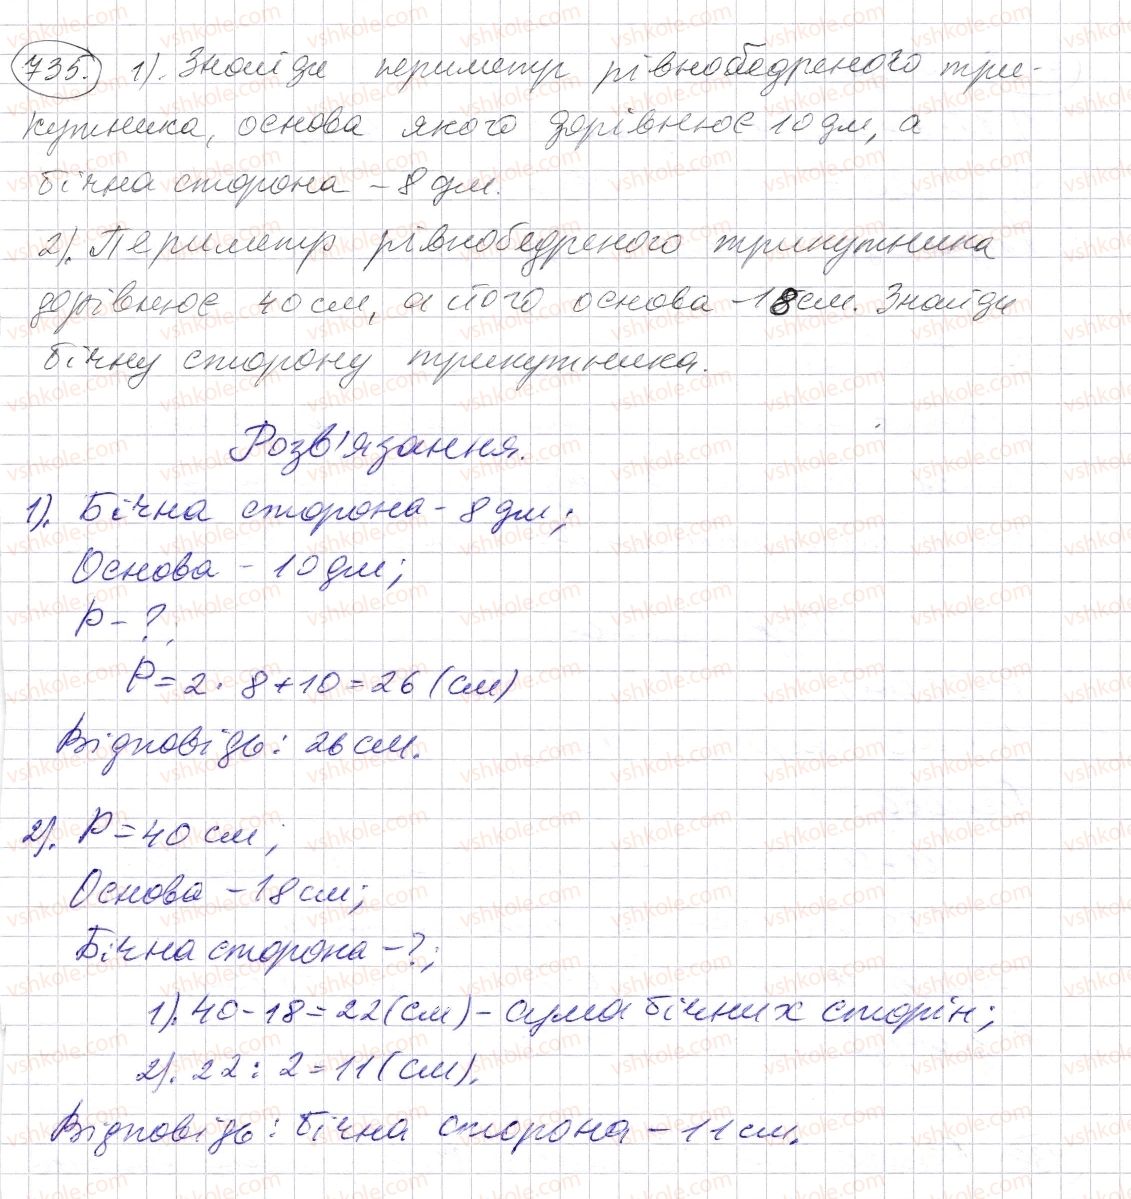 735. 1). Знайди периметр рівнобедреного три-
кутника, основа якого дорівнює 10 дм, а
бічна сторона – 8 дм.
2). Периметр рівнобедреного трикутника
дорівнює 40 см, а його основа – 18 см. Знайди
бічну сторону трикутника.
Розв'язання.
1). Бічна сторона – 8 дм;
Основа – 10 дм;
P – ?
P = 2 · 8 + 10 = 26 (см)
Відповідь: 26 см.
2). P = 40 см;
Основа – 18 см;
Бічна сторона – ?;
1). 40 - 18 = 22 (см) – сума бічних сторін;
2). 22 : 2 = 11 (см).
Відповідь: бічна сторона – 11 см.